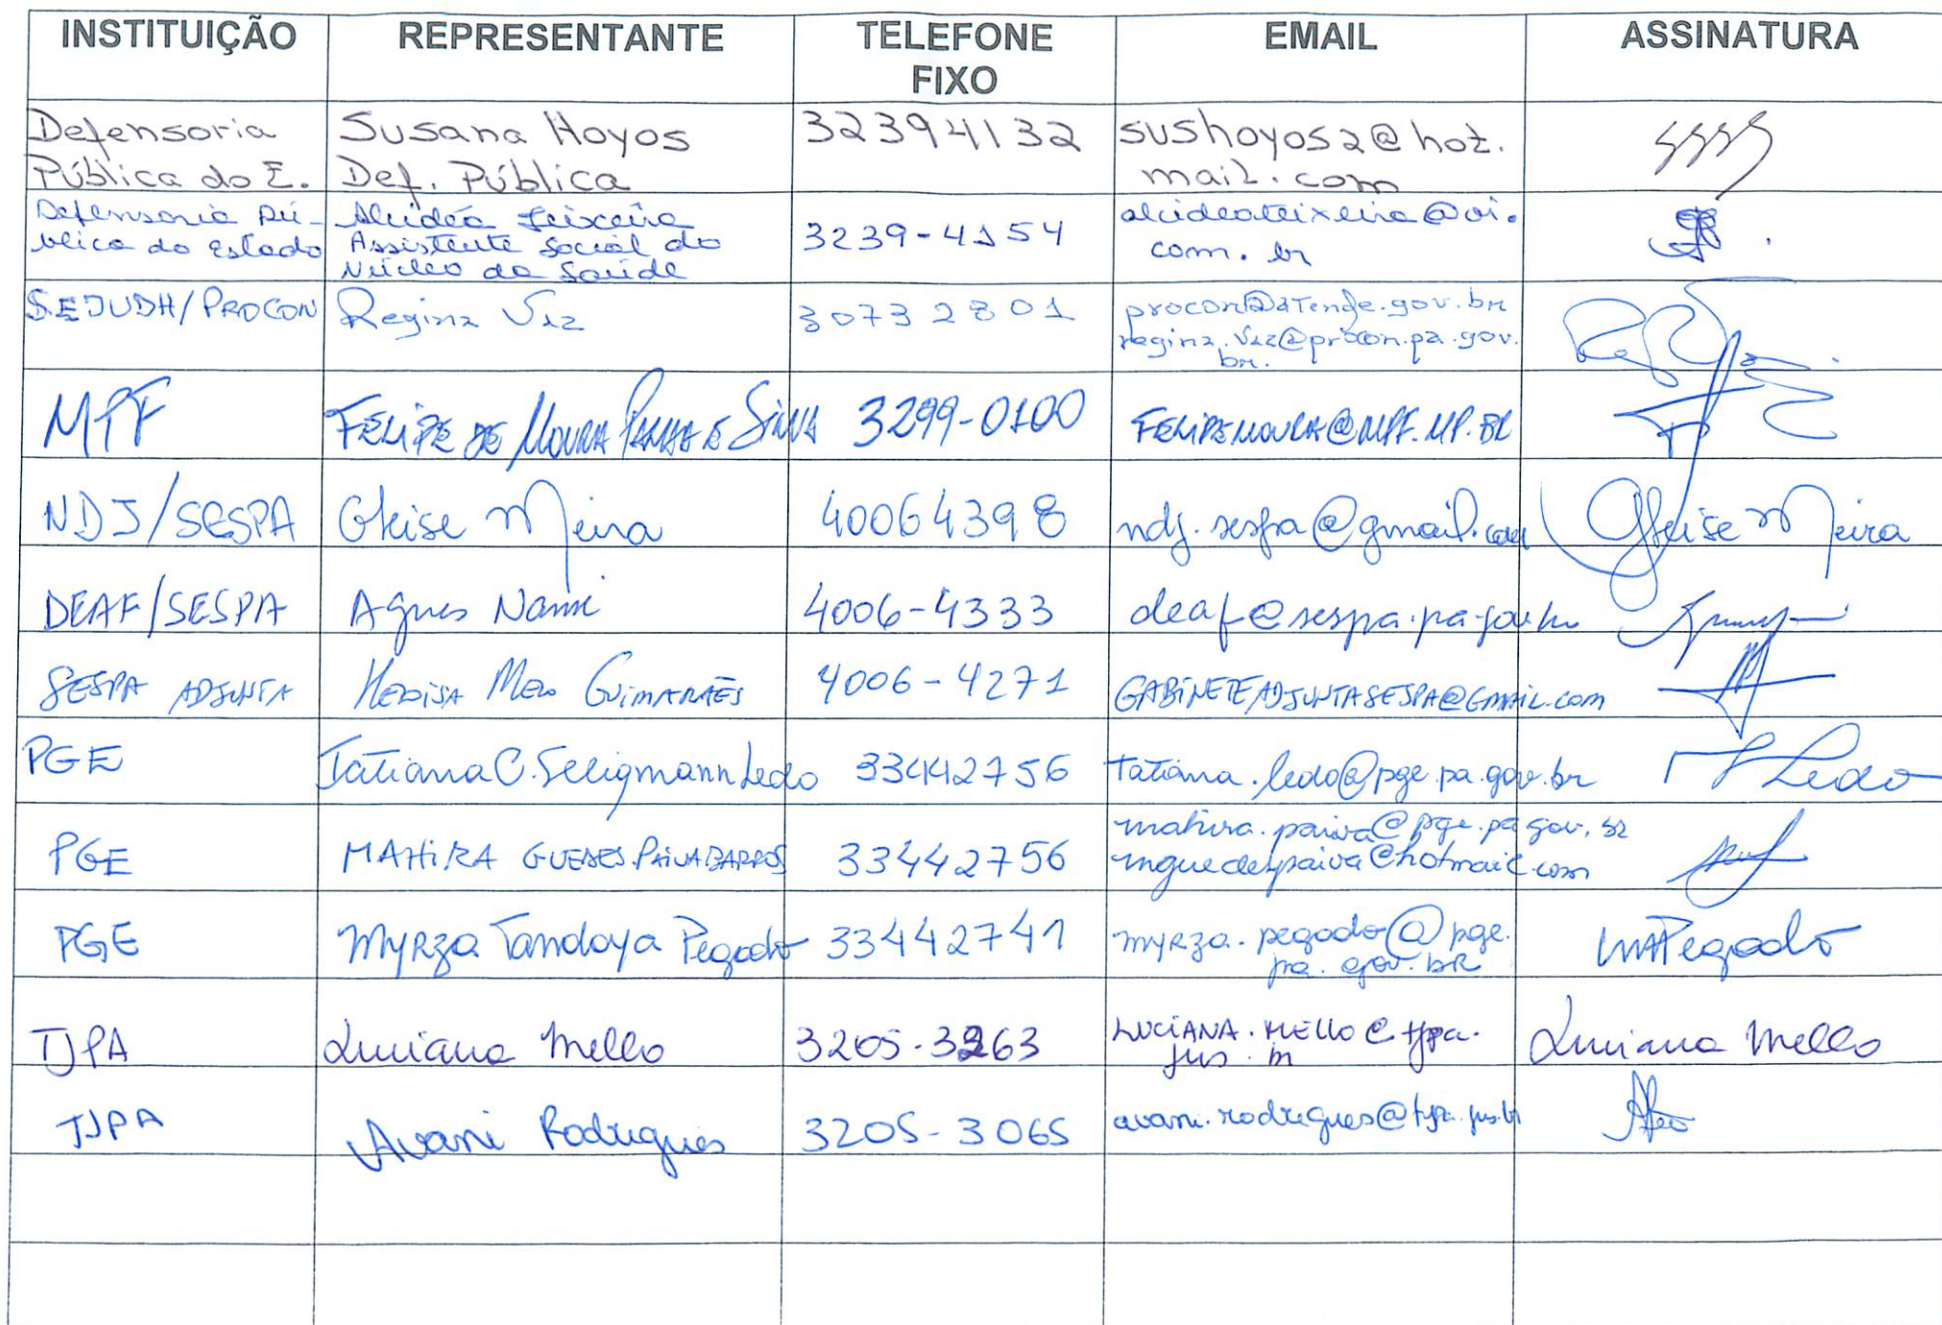 INSTITUIÇÃO REPRESENTANTE TELEFONE FIXO EMAIL ASSINATURA
Defensoria Pública do E. Susana Hoyos Def. Pública 32394132 sushoyos2@hot.mail.com
Defensoria Pú-blica do Estado Alcidéa Teixeira Assistente Social do Núcleo da Saúde 3239-4154 alcideateixeira@oi.com.br
SEJUDH/PROCON Regina Vaz 30732801 procon@atende.gov.br regina.vaz@procon.pa.gov.br.
MPF FELIPE DE MOURA PALHA E SILVA 3299-0100 FELIPEMOURA@MPF.MP.BR
NDJ/SESPA Gleise Meira 40064398 ndj.sespa@gmail.com Gleise Meira
DEAF/SESPA Agnes Nami 4006-4333 deaf@sespa.pa.gov.br
SESPA ADJUNTA HELOISA MELO GUIMARÃES 4006-4271 GABINETEADJUNTASESPA@GMAIL.COM
PGE Tatiana C. Seligmann Ledo 33442756 tatiana.ledo@pge.pa.gov.br Ledo
PGE MAHIRA GUEDES PAIVA BARROS 33442756 mahira.paiva@pge.pa.gov.br mguedespaiva@hotmail.com
PGE Myrza Tandaya Pegado 33442741 myrza.pegado@pge.pa.gov.br Pegado
TJPA Luciana Mello 3205-3263 LUCIANA.MELLO@tjpa.jus.br Luciana Mello
TJPA Avani Rodrigues 3205-3065 avani.rodrigues@tjpa.jus.br